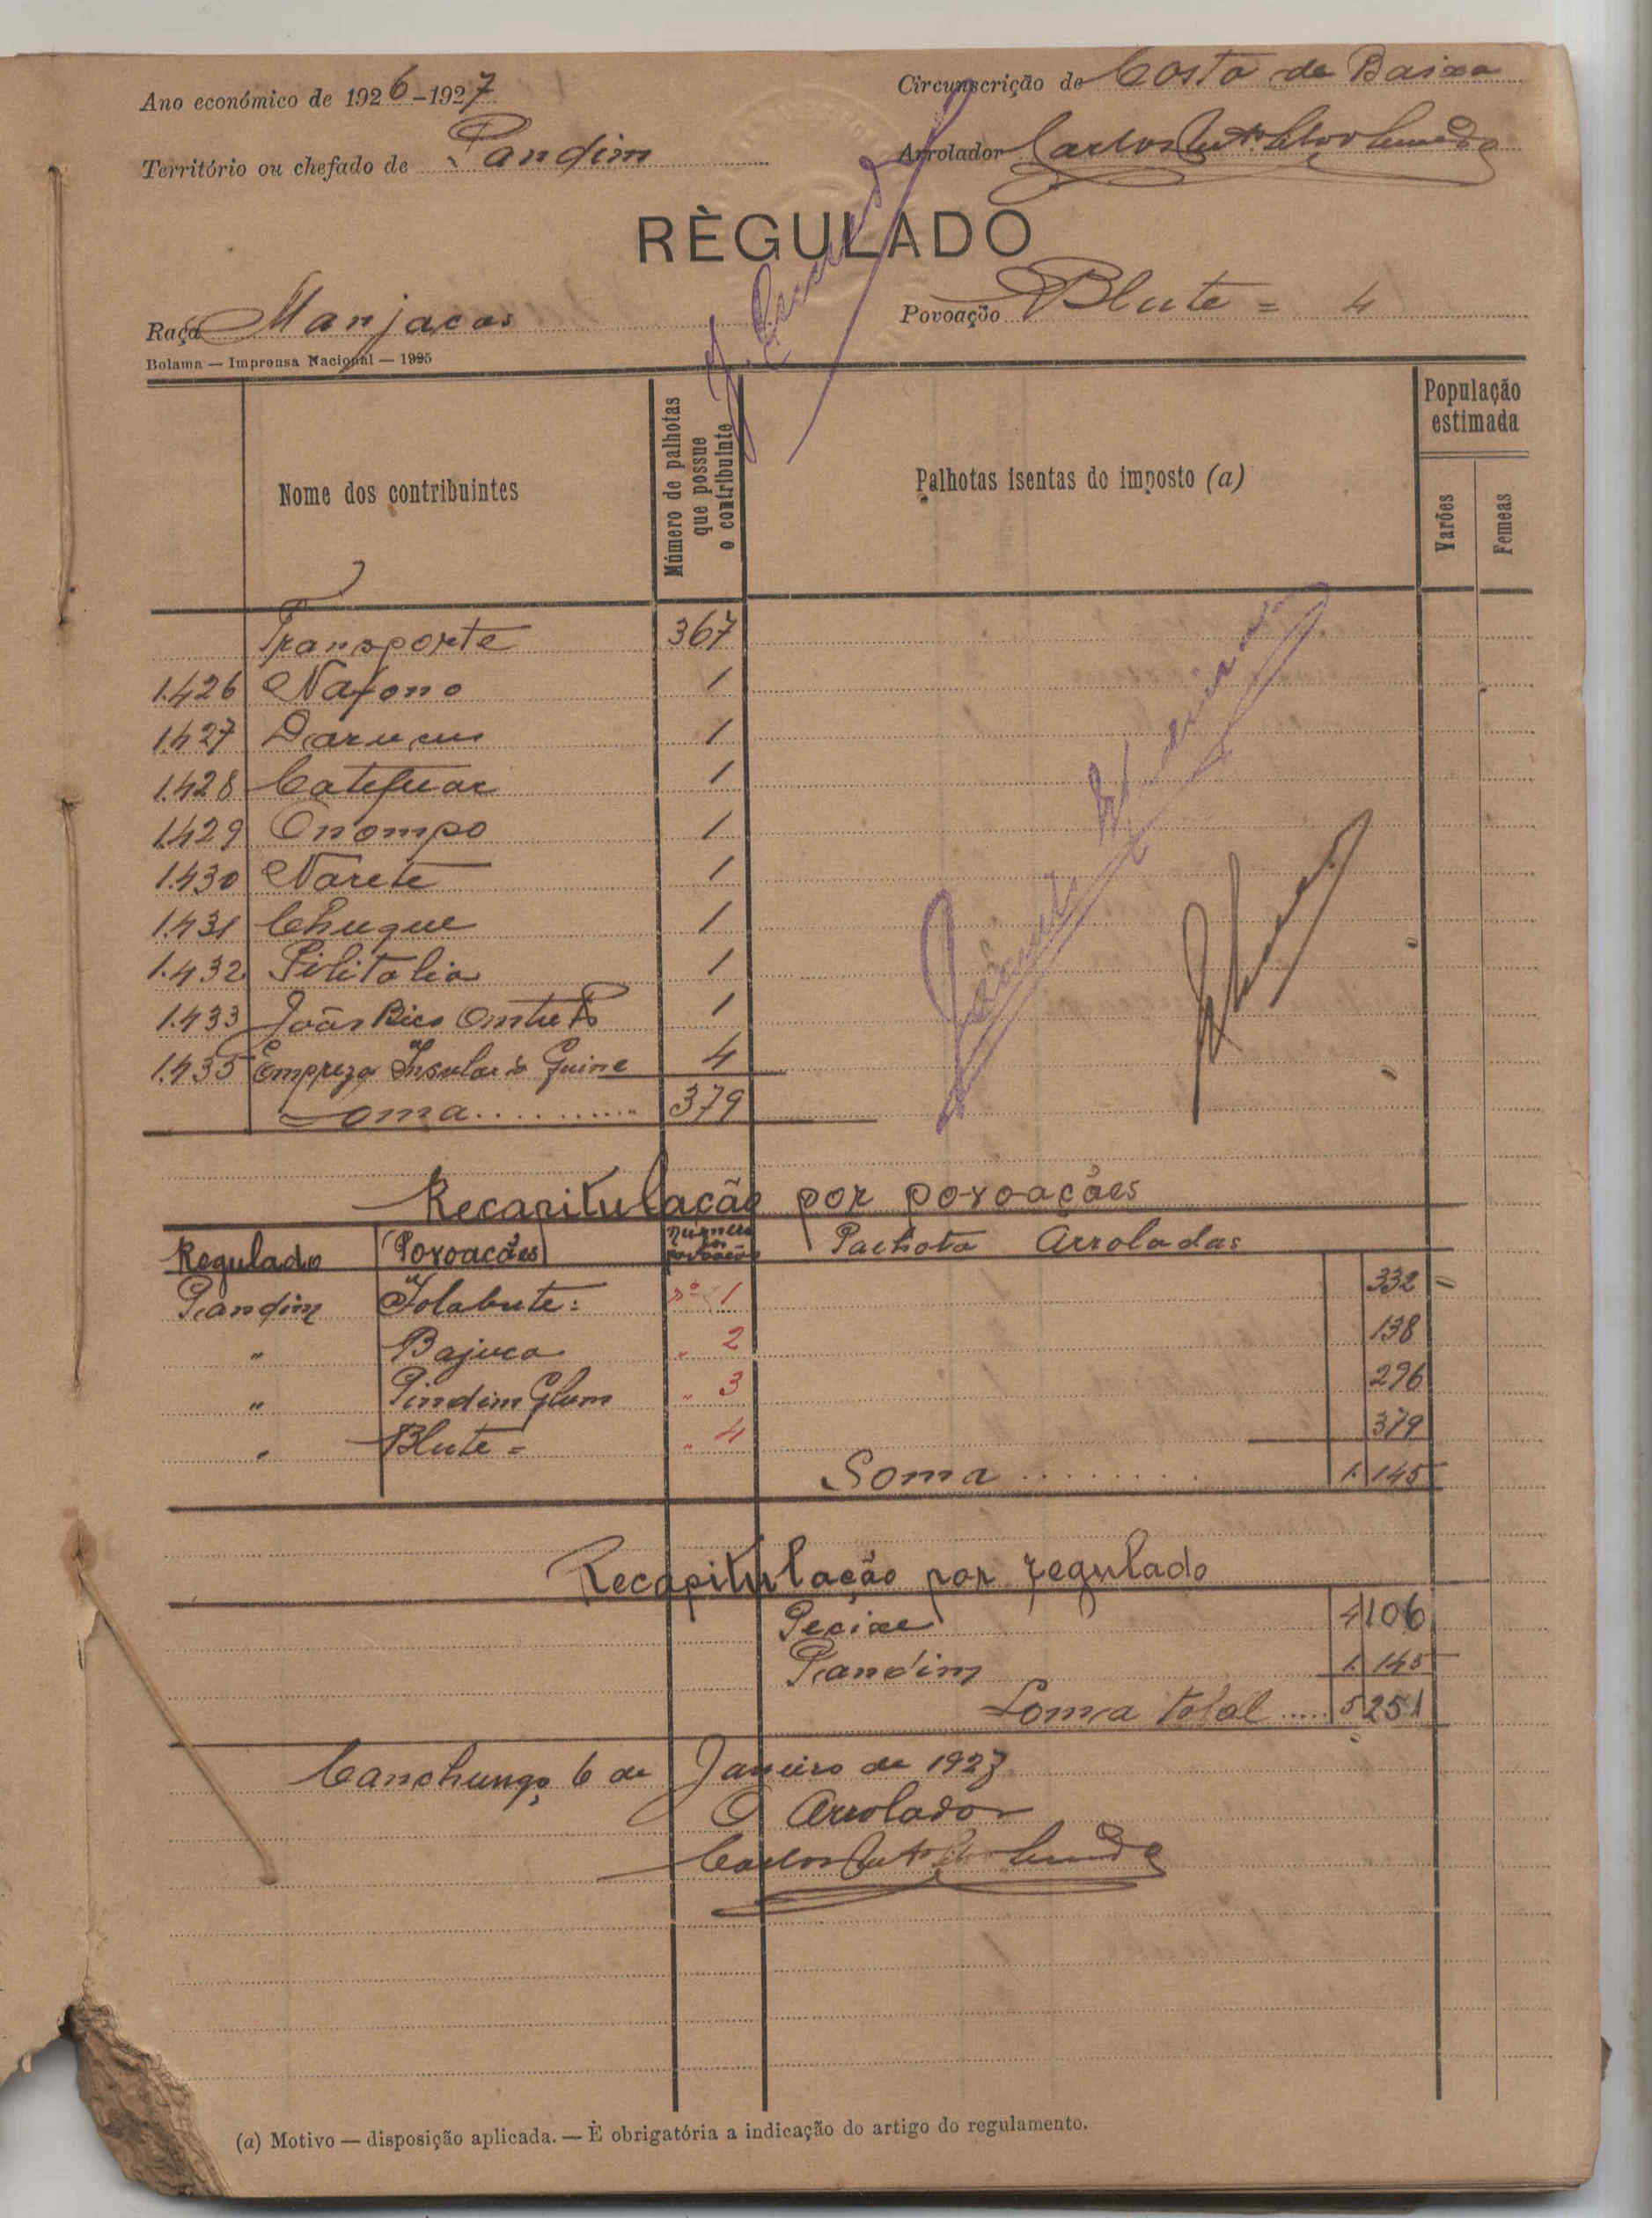 Ano económico de 1926-1927 Circunscrição de Costa de Baixo
Território ou chefado de Pandim Arrolador Carlos
RÈGULADO
Raça Manjacos Povoação Blute = 4
Bolama — Imprensa Nacional — 1925
Nome dos contribuintes
Número de palhotas que possue o contribuinte
Palhotas isentas do imposto (a)
População estimada
Varões Femeas
Transporte 367
1.426 Nafono 1
1.427 1
1.428 1
1.429 Onompo 1
1.430 Narete 1
1.431 Chuque 1
1.432 Pilitalia 1
1.433 João Bico 1
1.435 Empreza Insular Guine 4
Soma.......... 379
Recapitulação por povoações
Regulado Povoacões Número Pachota Arroladas
Pandim Jolabute: nº 1 332
" Bajuca " 2 138
" Pindim Glum " 3 296
" Blute = " 4 379
Soma ........ 1.145
Recapitulação por regulado
Pecixe 4106
Pandim 1.145
Soma total ..... 5251
Canchungo, 6 de Janeiro de 1927
O Arrolador
Carlos
(a) Motivo — disposição aplicada. — É obrigatória a indicação do artigo do regulamento.